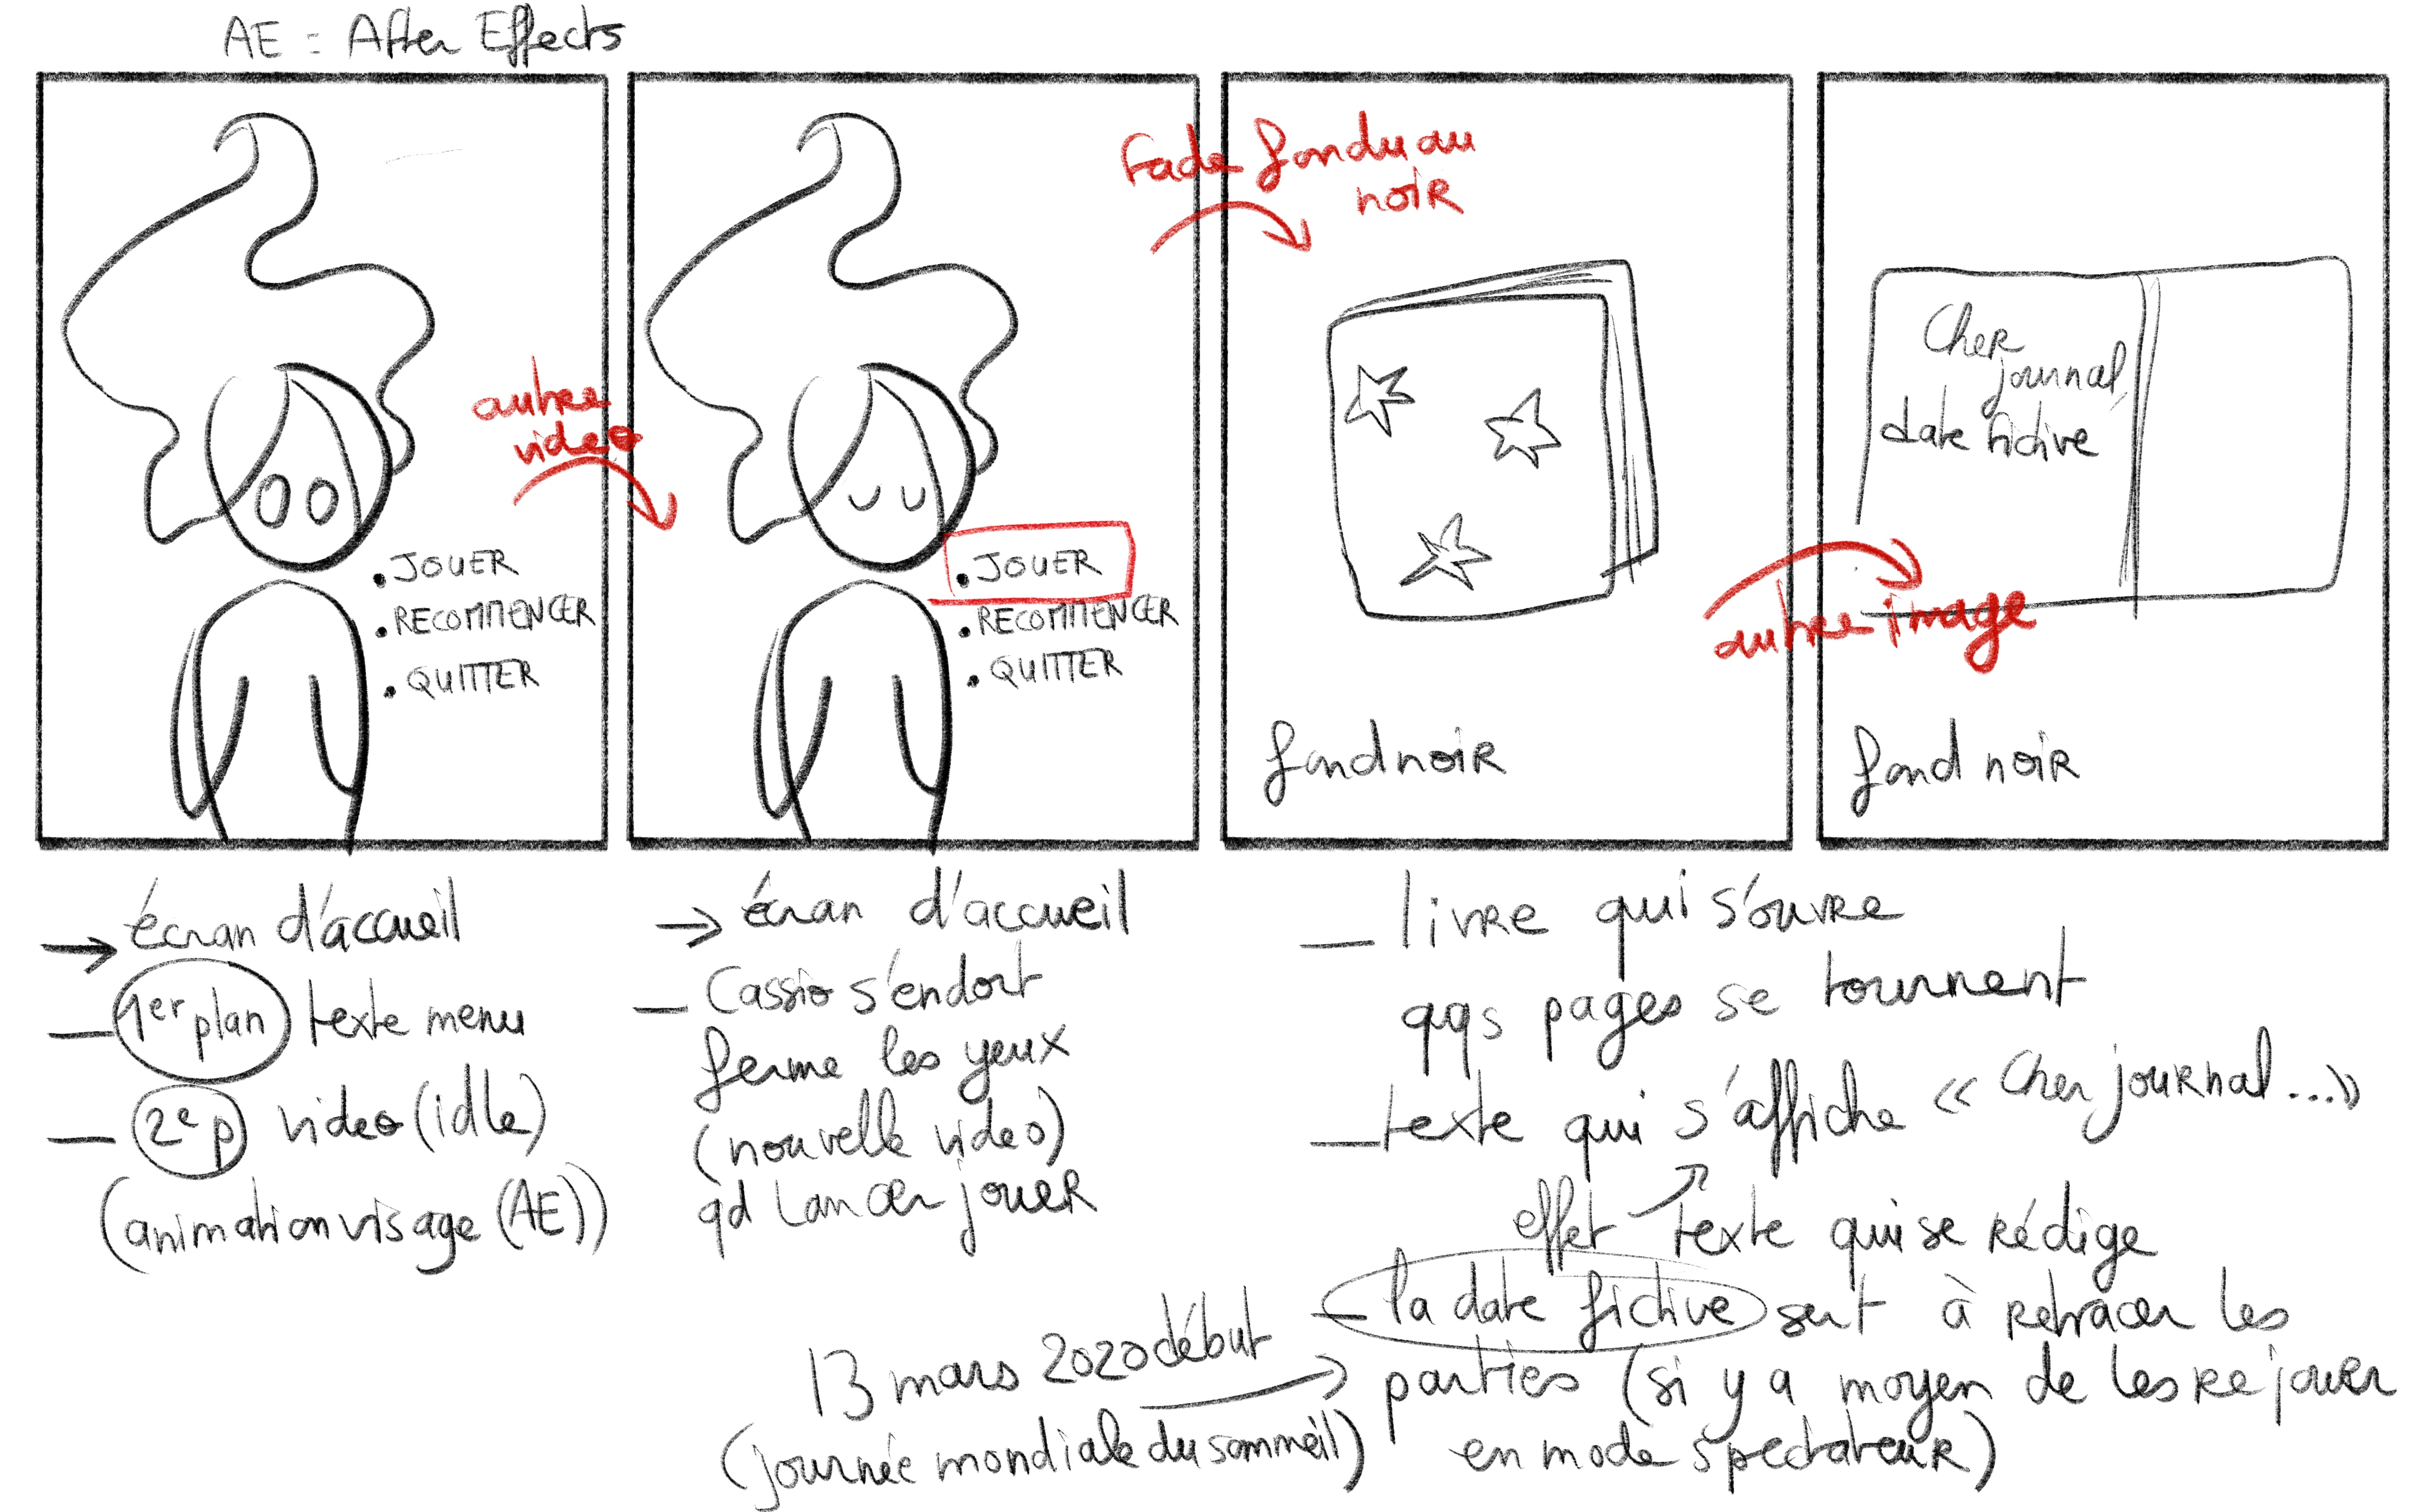 AE = After Effects
autre
video
• JOUER
• RECOMMENCER
• QUITTER
Fade fondu au
noir
• JOUER
• RECOMMENCER
• QUITTER
fond noir
autre image
Cher
journal,
date fictive
fond noir
→ écran d'accueil
— 1er plan texte menu
— 2e p video (idle)
(animation visage (AE))
→ écran d'accueil
— Cassio s'endort
ferme les yeux
(nouvelle video)
qd lancer jouer
— livre qui s'ouvre
qqs pages se tournent
— texte qui s'affiche « Cher journal...»
effet texte qui se rédige
— la date fictive sert à retracer les
parties (si y a moyen de les rejouer
en mode spectateur)
13 mars 2020 début
(journée mondiale du sommeil)